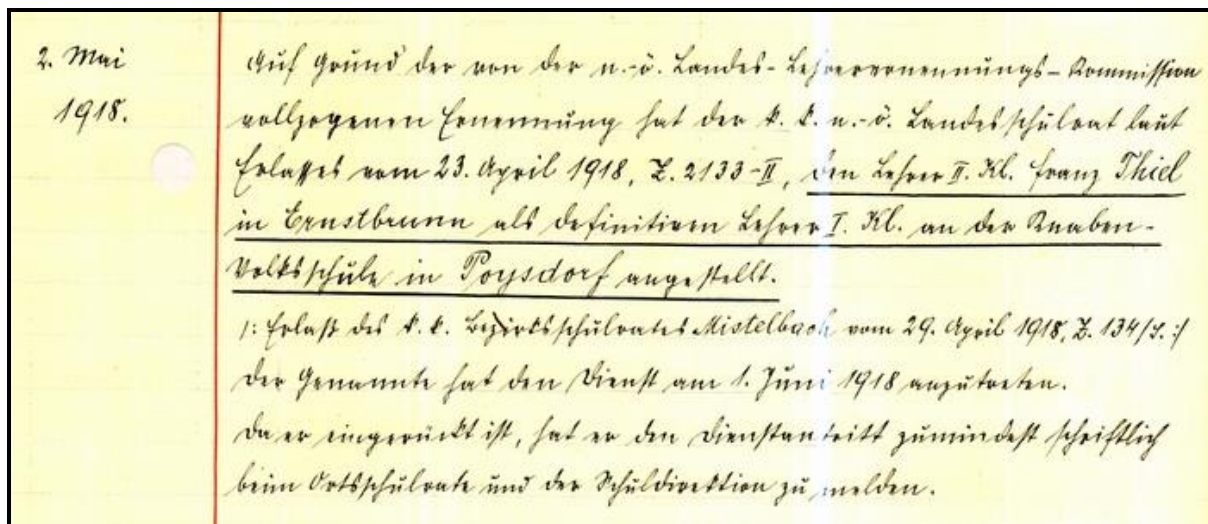 2. Mai
1918.
Auf Grund der von der n.-ö. Landes-Lehrerernennungs-Kommission
vollzogenen Ernennung hat der k. k. n.-ö. Landesschulrat laut
Erlasses vom 23. April 1918, Z. 2133-II, den Lehrer II. Kl. Franz Thiel
in Ernstbrunn als definitiven Lehrer I. Kl. an der Knaben-
Volksschule in Poysdorf angestellt.
/: Erlaß des k. k. Bezirksschulrates Mistelbach vom 29. April 1918, Z. 134/L. :/
Der Genannte hat den Dienst am 1. Juni 1918 anzutreten.
Da er eingerückt ist, hat er den Dienstantritt zumindest schriftlich
beim Ortsschulrate und der Schuldirektion zu melden.